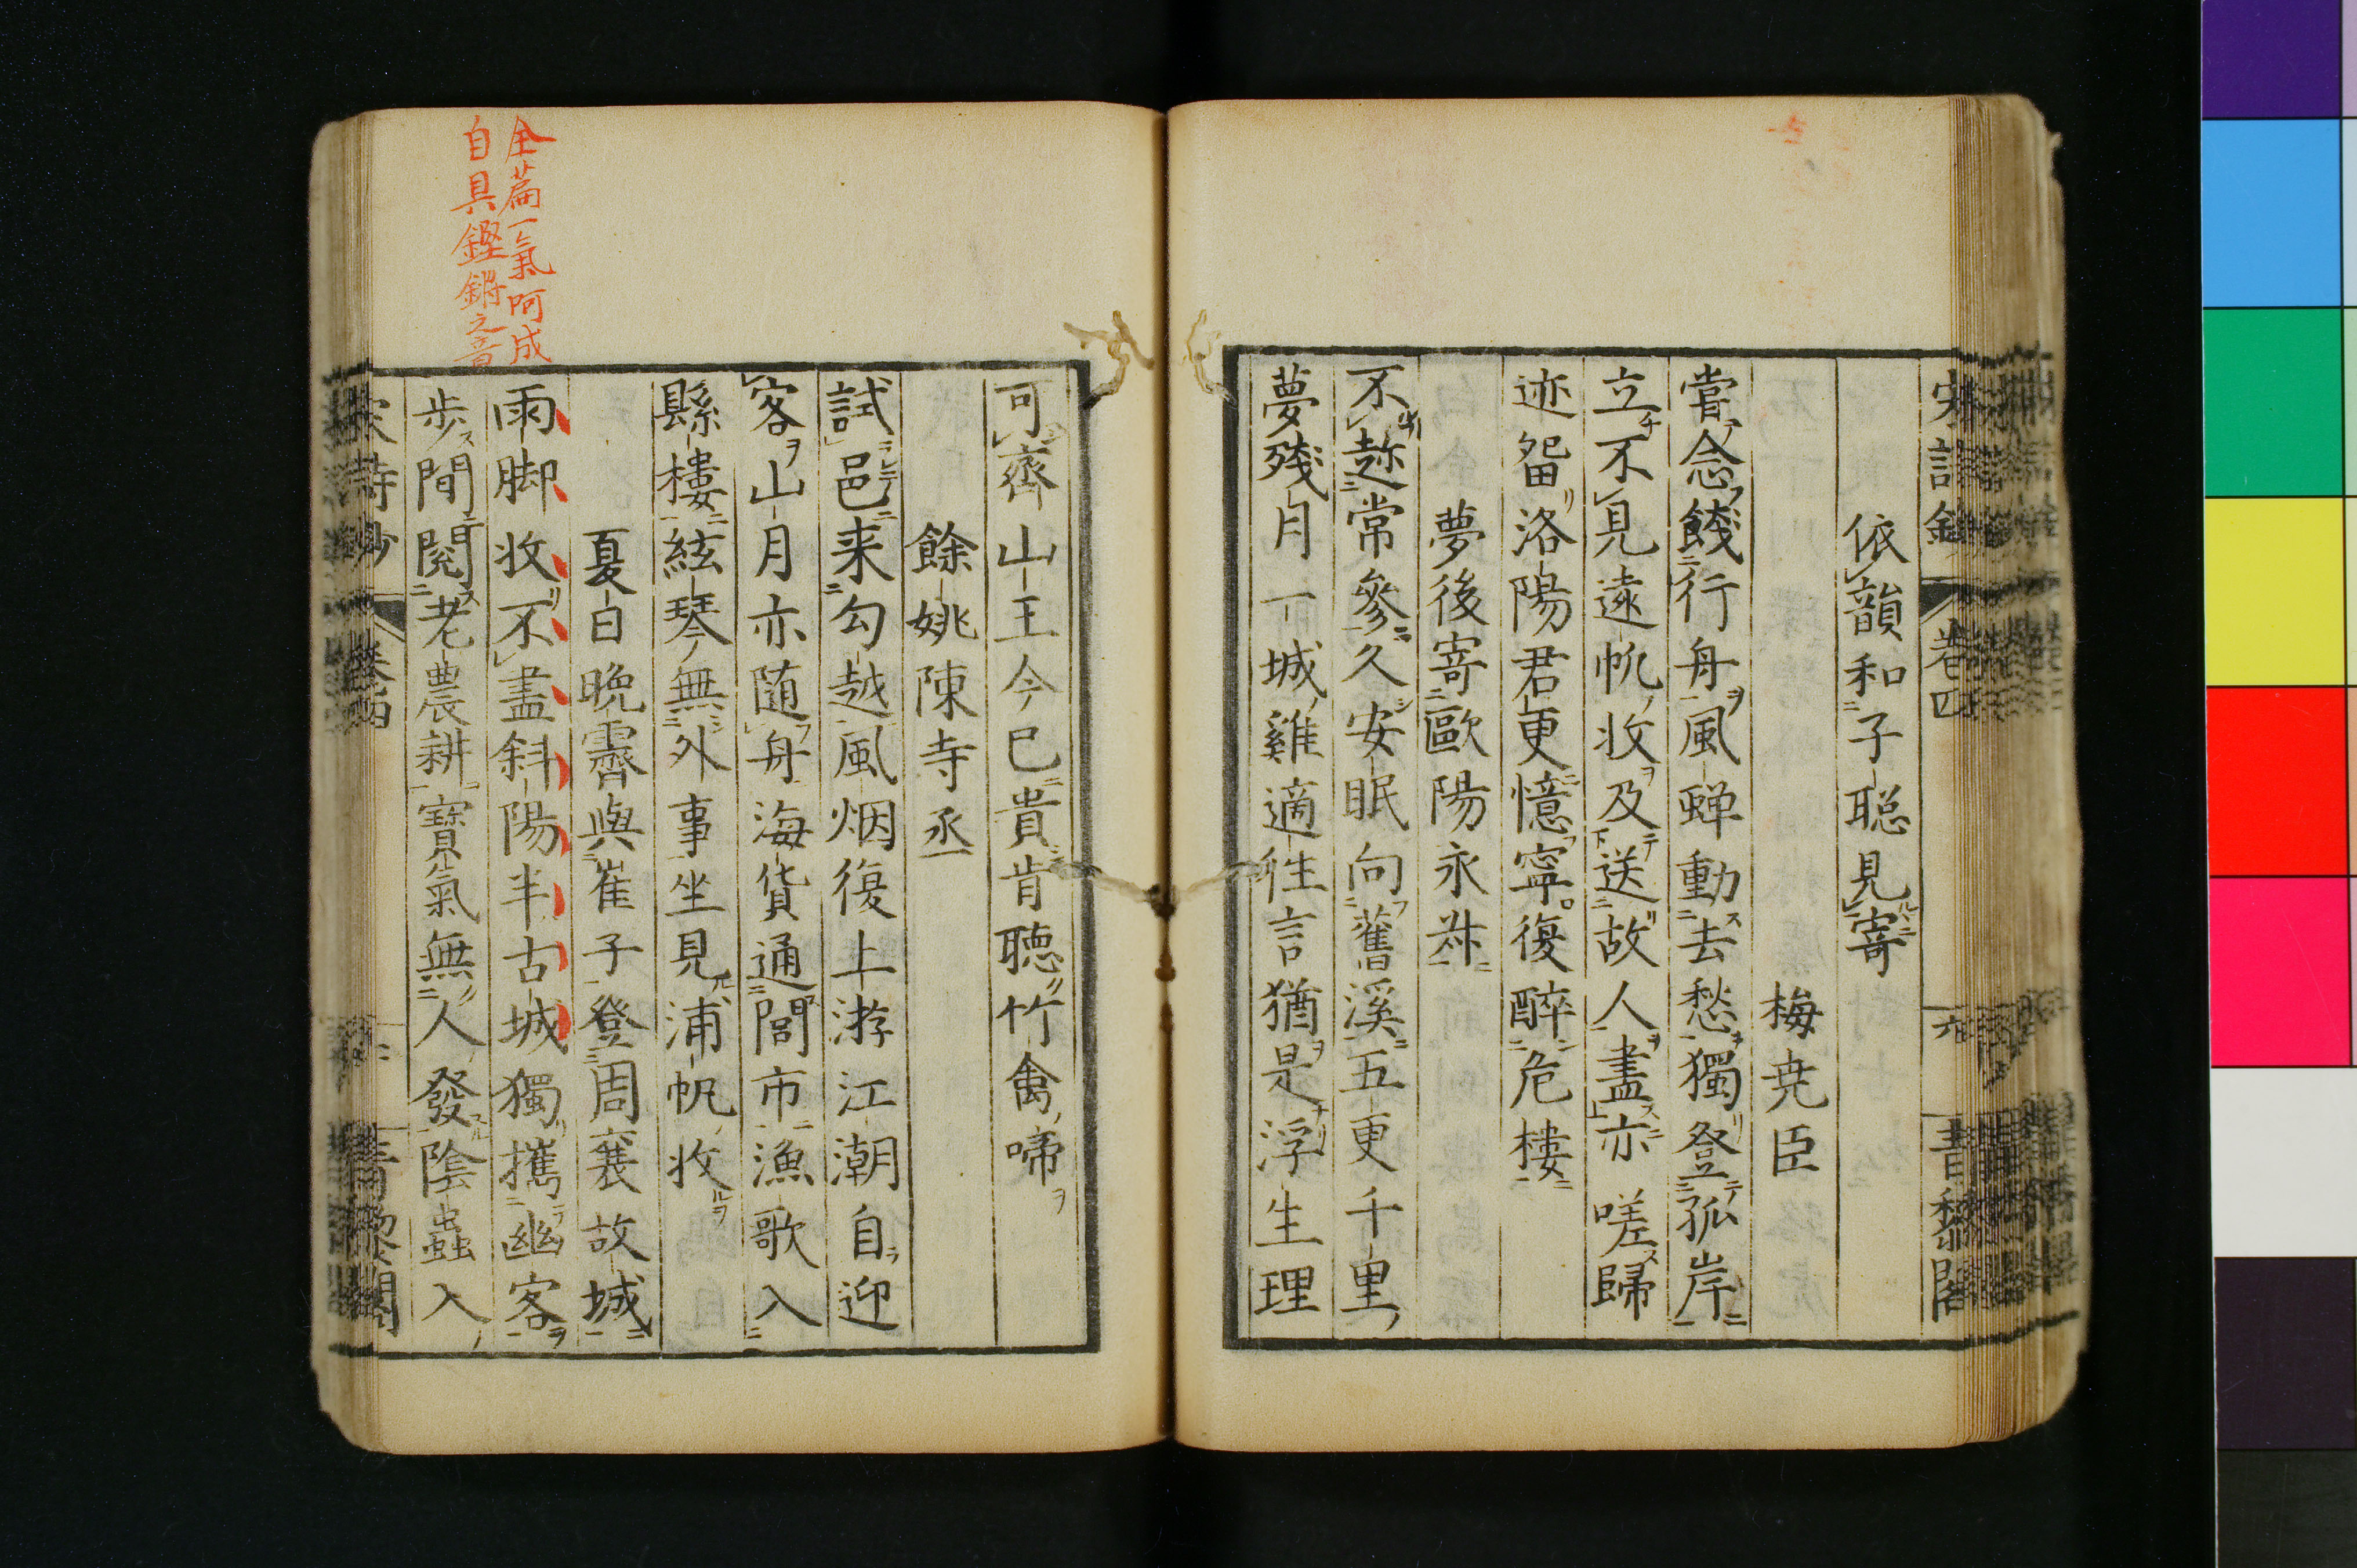 宋詩鈔 卷四 六 青藜閣
依韻和子聡見寄
梅尭臣
嘗念餞行舟風蟬動去愁獨登孤岸
立不見遠帆收及送故人盡亦嗟歸
迹畱洛陽君更憶寧復醉危樓
夢後寄歐陽永叔
不趂常參久安眠向舊溪五更千里
夢殘月一城雞適徃言猶是浮生理
可齊山王今已貴肯聴竹禽啼
餘姚陳寺丞
試邑来勾越風烟復上游江潮自迎
客山月亦随舟海貨通閭市漁歌入
縣樓絃琴無外事坐見浦帆收
夏日晩霽與崔子登周襄故城
雨脚收不盡斜陽半古城獨攜幽客
歩閒閲老農耕寶氣無人發陰蟲入
宋詩鈔 卷四 青藜閣
全篇一氣呵成
自具鏗鏘之音